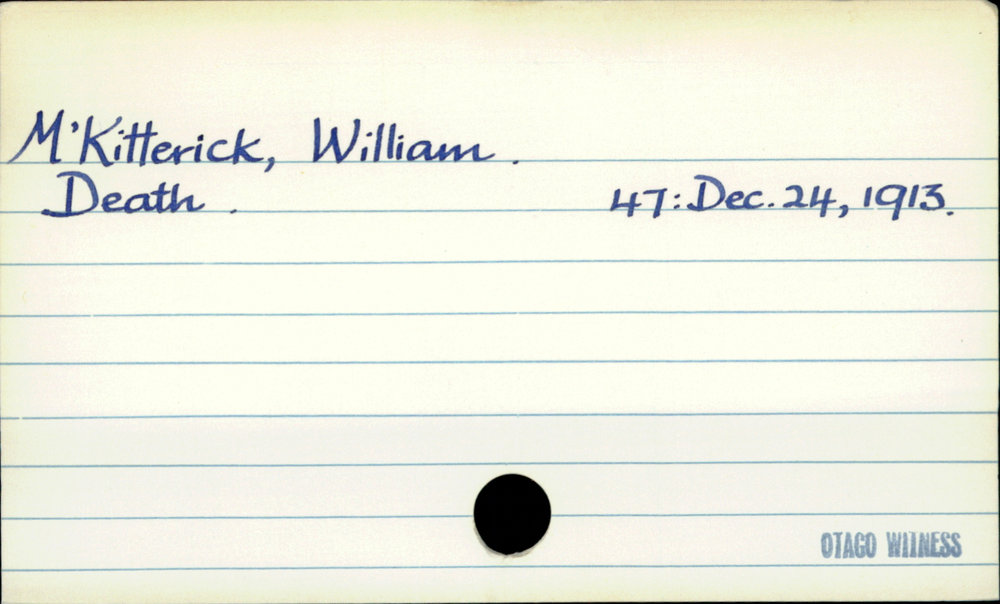 M'Kitterick, William.
Death. 47: Dec. 24, 1913.
OTAGO WITNESS